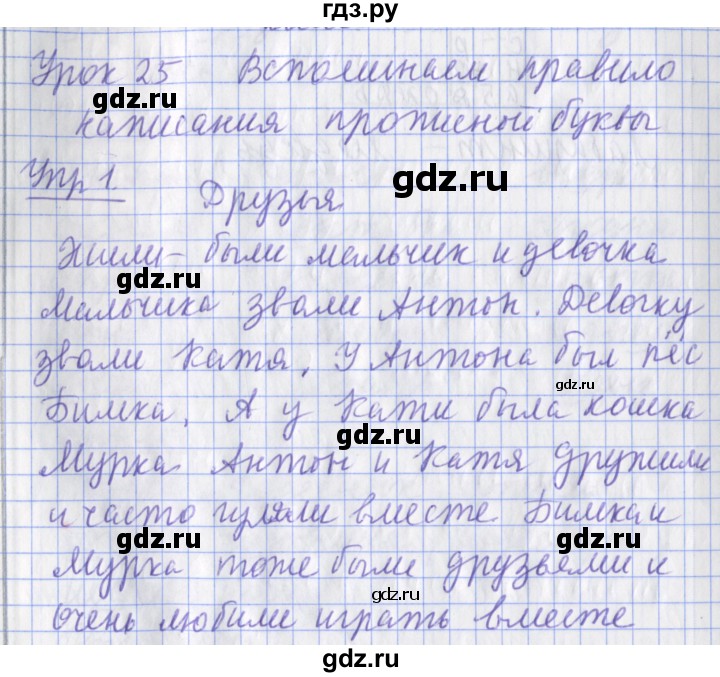 гдз.ру
Урок 25 Вспоминаем правило
gdz.ru
написания прописной буквы
Упр 1
gdz.ru
Друзья
Жили-были мальчик и девочка
gdz.ru
Мальчика звали Антон. Девочку
звали Катя. У Антона был пёс
gdz.ru
Бимка. А у Кати была кошка
gdz.ru
Мурка Антон и Катя дружили
и часто гуляли вместе Бимка и
gdz.ru
gdz.ru
Мурка тоже были друзьями и
gdz.ru
очень любили играть вместе
gdz.ru